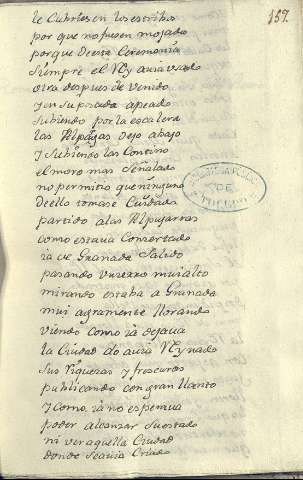 157.
le Cubries en los estribos
por que no fuesen mojado
porque de esta Ceremonia
siempre el Rey auia usado
otra despues de venido
y en su posada apeado
subiendo por la escalera
las Alpagas dejo abajo
y subiendo las Continó
el moro mas señalado
no permitio que ninguno
de ello tomase Cuidado
partido a las Alpujarras
como estaua Consertado
ia de Granada salido
pasando un zerro mui alto
mirando estaba a Granada
mui agramente llorando
viendo como ia dejaua
la Ciudad do auia Reynado
sus riquezas y frescuras
publicando con gran llanto
y como ia no esperaua
poder alcanzar su estado
ni ver aquella Ciudad
donde se auia Criado